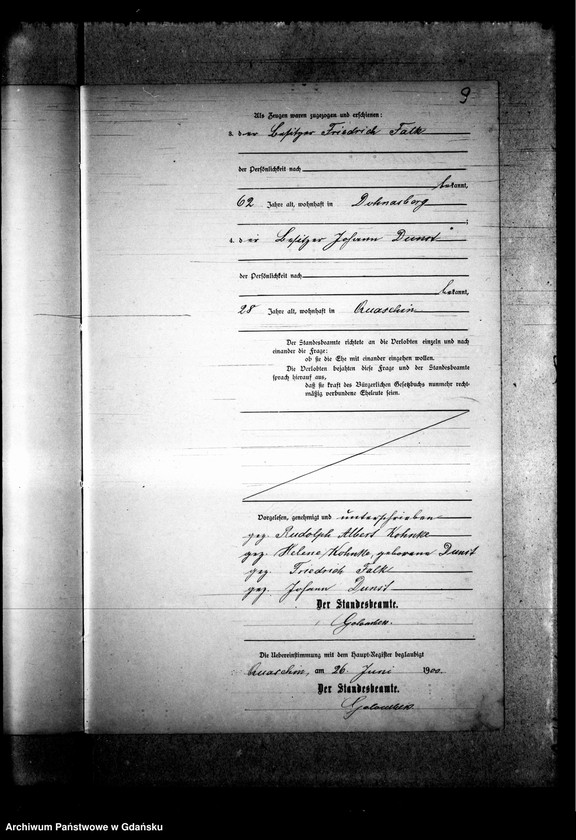 9
Als Zeugen waren zugezogen und erschienen:
3. der Besitzer Friedrich Falk
der Persönlichkeit nach
bekannt,
62 Jahre alt, wohnhaft in Dohnasberg
;
4. der Besitzer Johann Dunst
der Persönlichkeit nach
bekannt,
28 Jahre alt, wohnhaft in Quaschin
Der Standesbeamte richtete an die Verlobten einzeln und nach
einander die Frage:
ob sie die Ehe mit einander eingehen wollen.
Die Verlobten bejahten diese Frage und der Standesbeamte
sprach hierauf aus,
daß sie kraft des Bürgerlichen Gesetzbuchs nunmehr recht-
mäßig verbundene Eheleute seien.
Vorgelesen, genehmigt und unterschrieben
gez. Rudolph Albert Kohnke
gez. Helene Kohnke, geborene Dunst
gez. Friedrich Falk
gez. Johann Dunst
Der Standesbeamte.
Die Uebereinstimmung mit dem Haupt-Register beglaubigt
Quaschin, am 26. Juni 1900.
Der Standesbeamte.
Archiwum Państwowe w Gdańsku